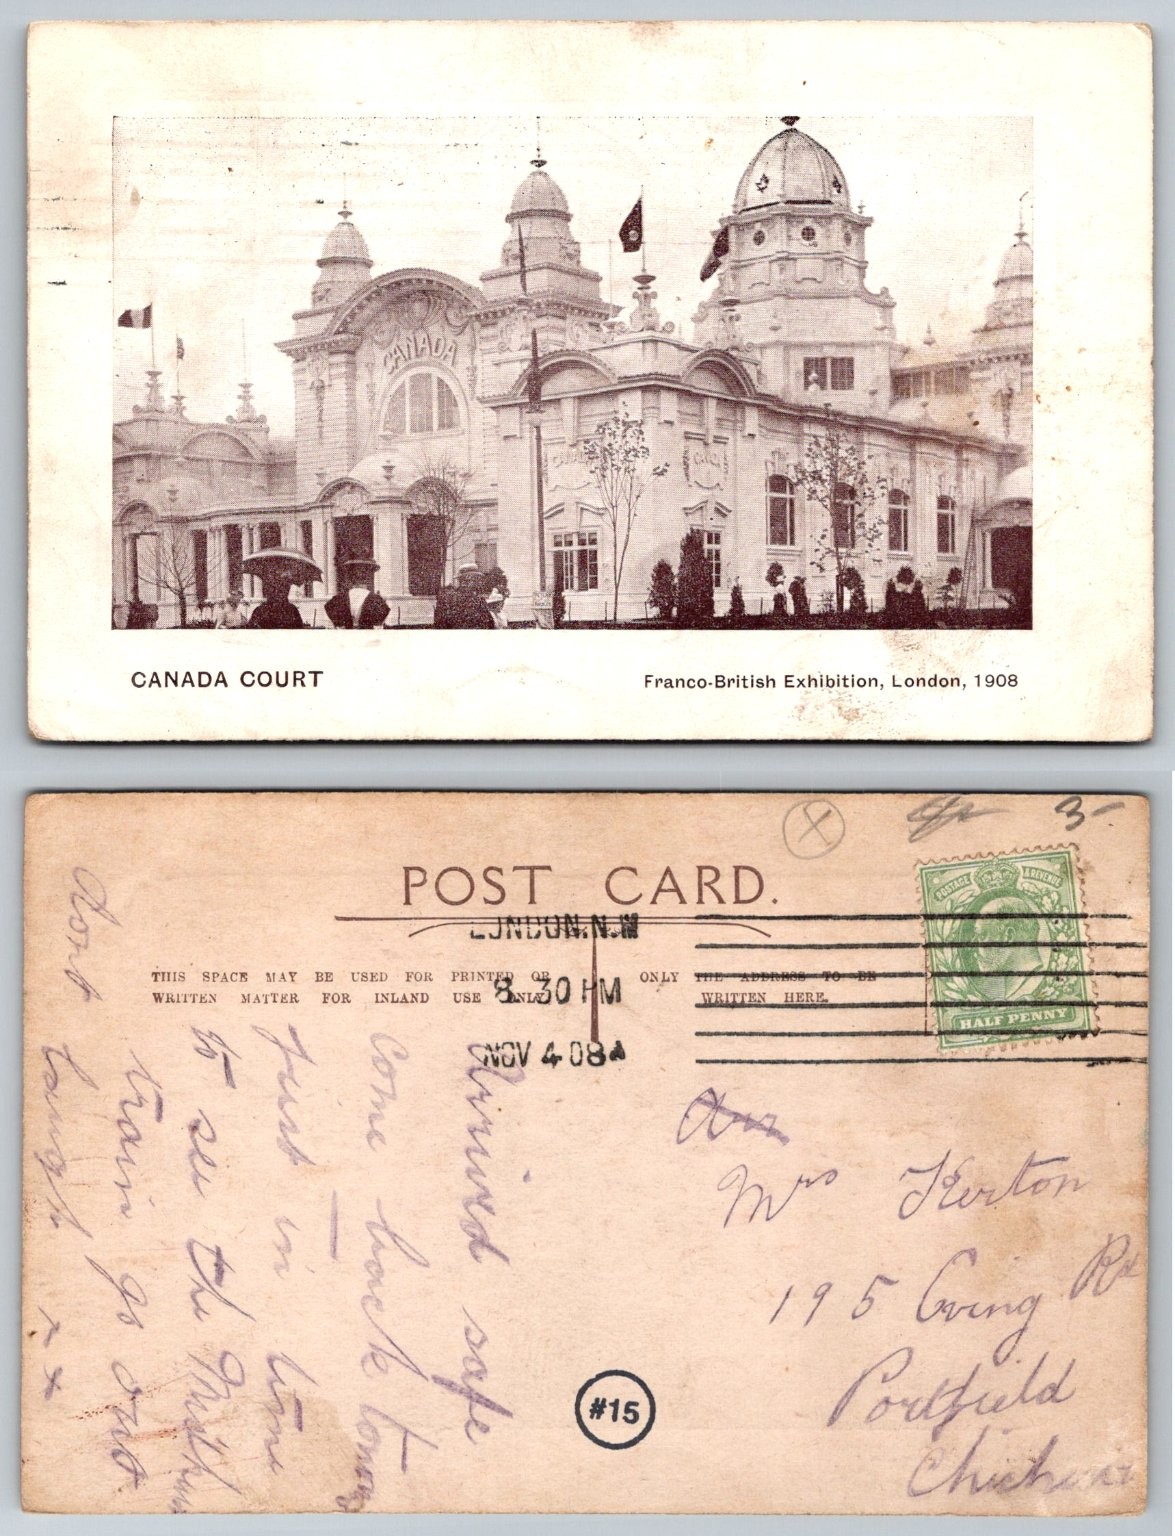 CANADA
CANADA COURT
Franco-British Exhibition, London, 1908
3-
POST CARD.
POSTAGE & REVENUE
HALF PENNY
LONDON. N.W
8. 30 PM
NOV 4 08
THIS SPACE MAY BE USED FOR PRINTED OR
WRITTEN MATTER FOR INLAND USE ONLY
ONLY THE ADDRESS TO BE
WRITTEN HERE.
Arrived safe
Come back
Just in time
to see the
train go out
dont
laugh x x
Mrs Kerton
195 Rd
Portfield
#15